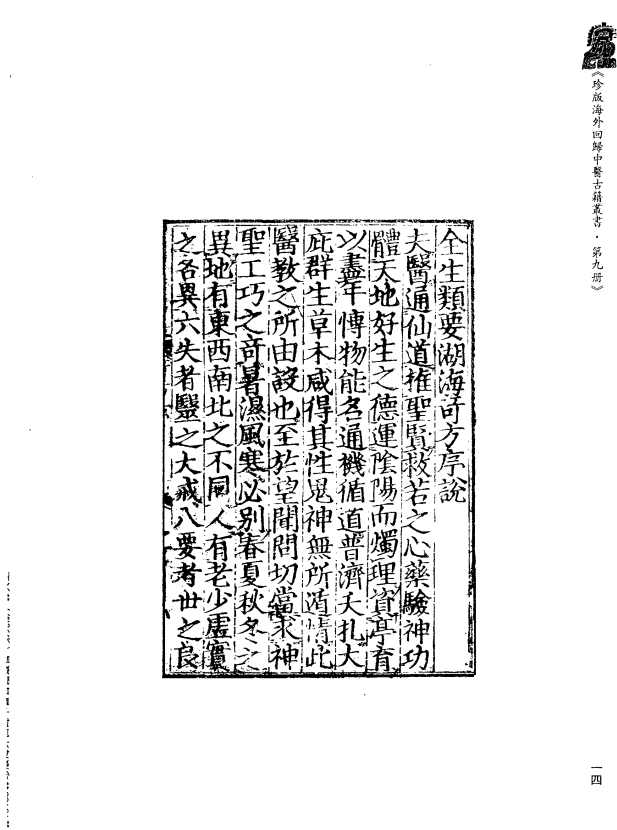 《珍版海外回歸中醫古籍叢書·第九册》
全生類要湖海奇方序說
夫醫通仙道推聖賢救苦之心藥驗神功
體天地好生之德運陰陽而燭理資亭育
以盡年博物能名通機循道普濟夭扎大
庇群生草木咸得其性鬼神無所遁情此
醫教之所由設也至於望聞問切當求神
聖工巧之奇暑濕風寒必別春夏秋冬之
異地有東西南北之不同人有老少虛實
之各異六失者醫之大戒八要者世之良
一四